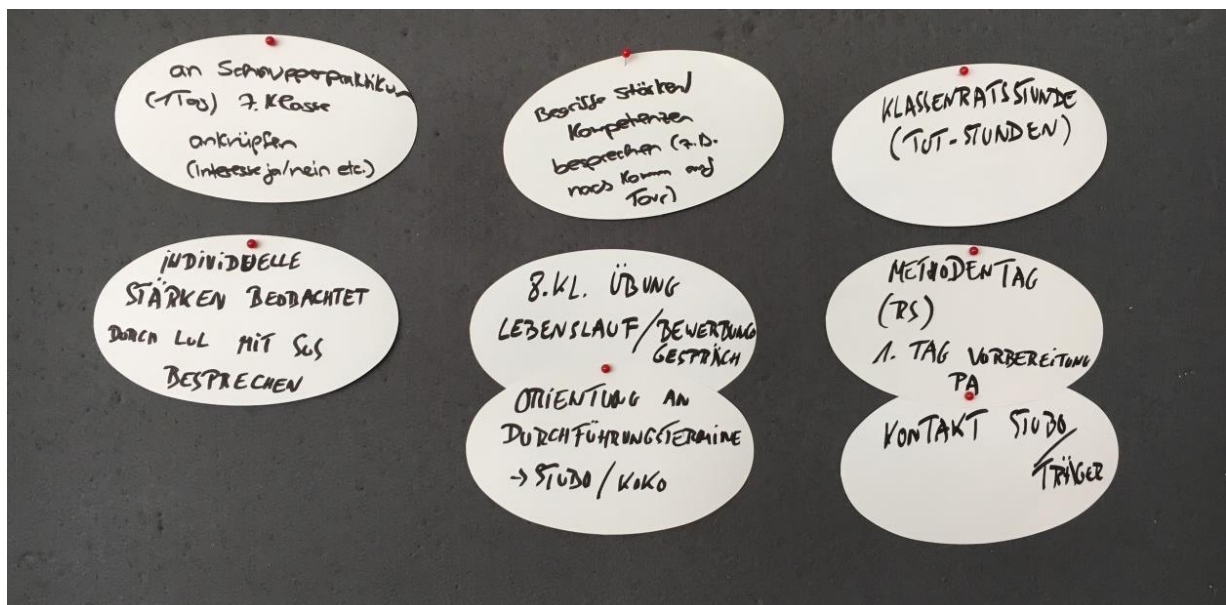 an Schnupperpraktikum
(1Tag) 7. Klasse
anknüpfen
(Interesse ja/nein etc.)
Begriffe Stärken/
Kompetenzen
besprechen (z.B.
nach Komm auf
Tour)
KLASSENRATSSTUNDE
(TUT-STUNDEN)
INDIVIDUELLE
STÄRKEN BEOBACHTET
DURCH LuL MIT SuS
BESPRECHEN
8.KL. ÜBUNG
LEBENSLAUF/BEWERBUNG
GESPRÄCH
ORIENTUNG AN
DURCHFÜHRUNGSTERMINE
→ STUBO/KOKO
METHODENTAG
(RS)
1. TAG VORBEREITUNG
PA
KONTAKT STUBO/
TRÄGER